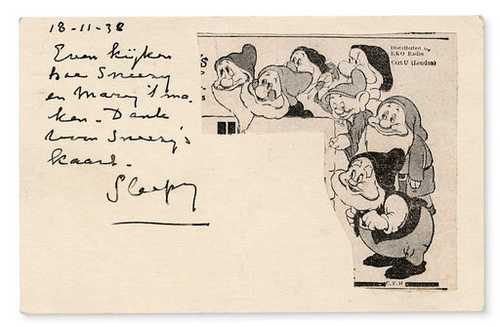 18-11-38
Even kijken
hoe Sneezy
en Mary 't ma-
ken. Dank
voor Sneezy's
kaart.
Sleepy
Distributed by
EKO Radio
COSU (London)